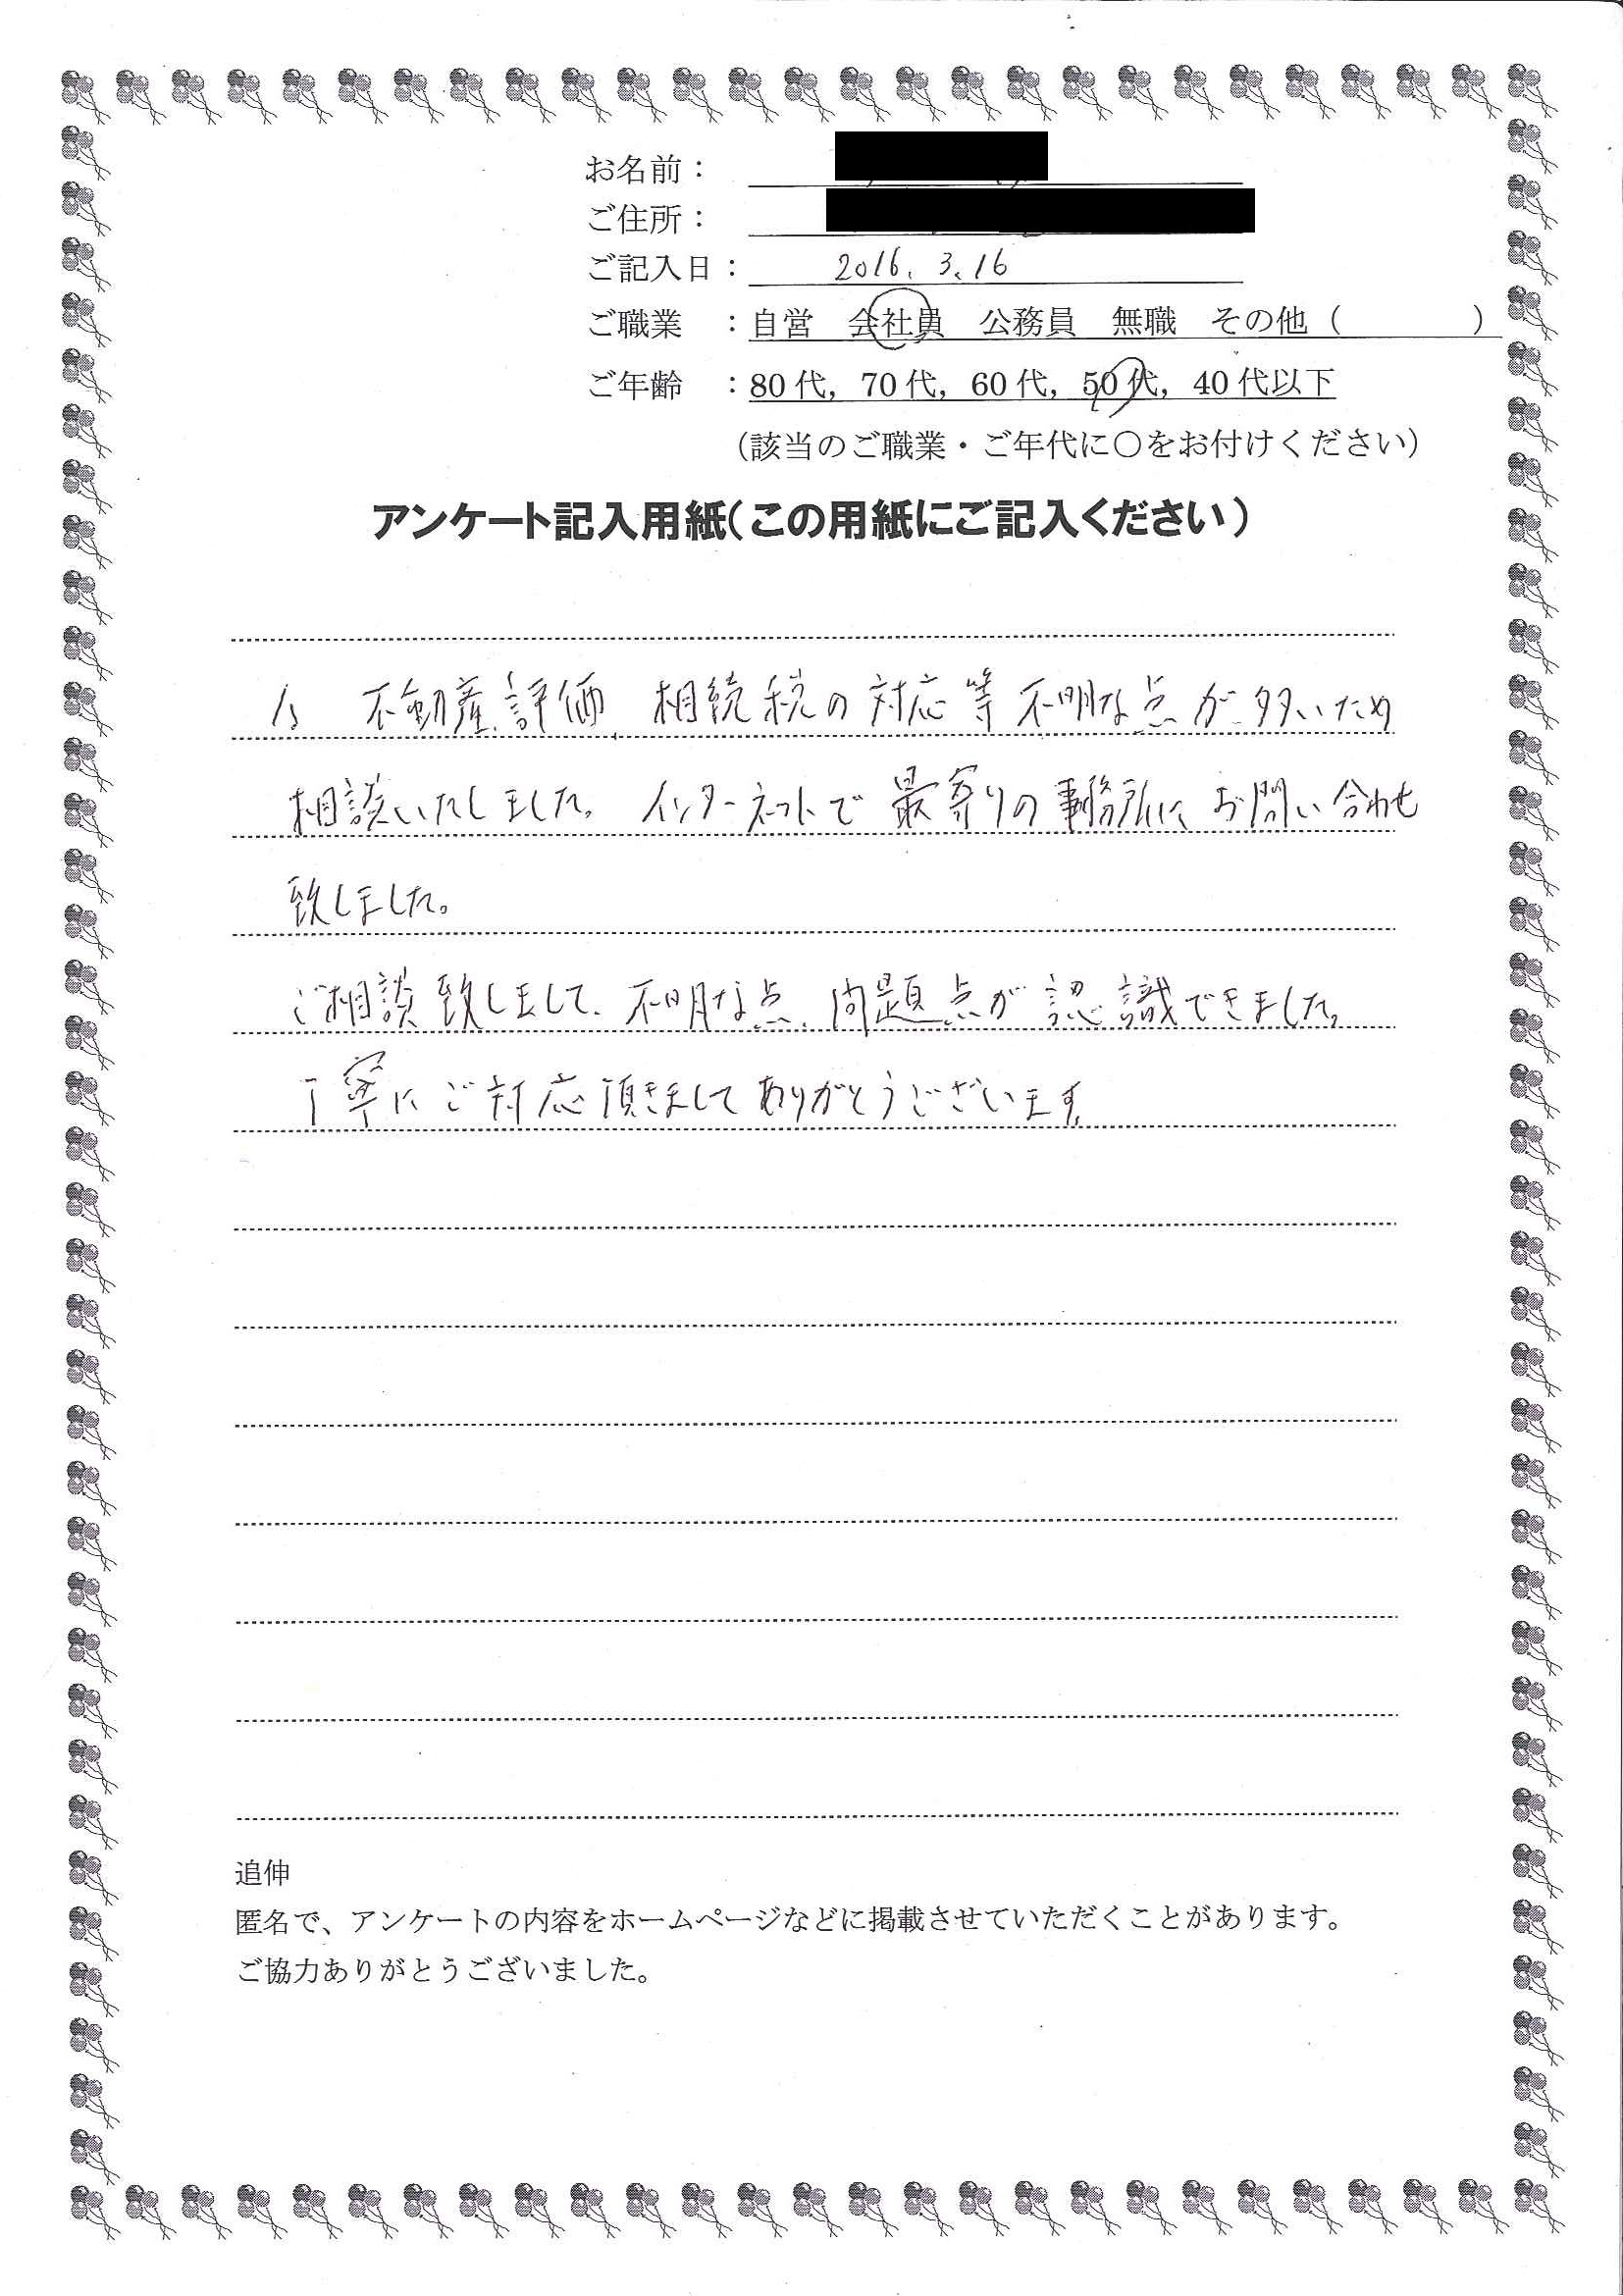 お名前：
ご住所：
ご記入日： 2016. 3. 16
ご職業　：自営　会社員　公務員　無職　その他（　　　　）
ご年齢　：80代，70代，60代，50代，40代以下
（該当のご職業・ご年代に〇をお付けください）
アンケート記入用紙（この用紙にご記入ください）
1、不動産評価、相続税の対応等不明な点が多いため
相談いたしました。インターネットで最寄りの事務所に、お問い合わせ
致しました。
ご相談致しまして、不明な点、問題点が認識できました。
丁寧にご対応頂きましてありがとうございます。
追伸
匿名で、アンケートの内容をホームページなどに掲載させていただくことがあります。
ご協力ありがとうございました。